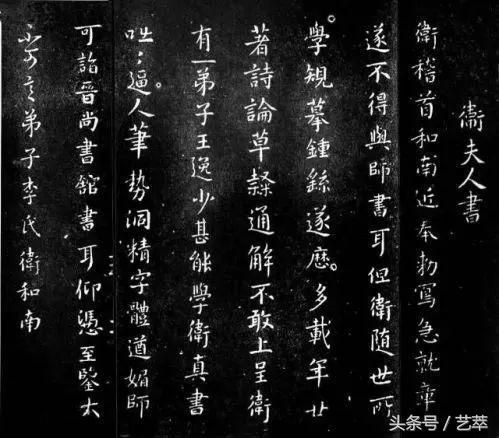 衛夫人書
衛稽首和南近奉勅寫急就章
遂不得與師書耳但衛随世所
學規摹鍾繇遂歷多載年廿
著詩論草隸通解不敢上呈衛
有一弟子王逸少甚能學衛真書
咄咄逼人筆勢洞精字體遒媚師
可詣晉尚書館書耳仰憑至鑒大
不可言弟子李氏衛和南
头条号/艺萃